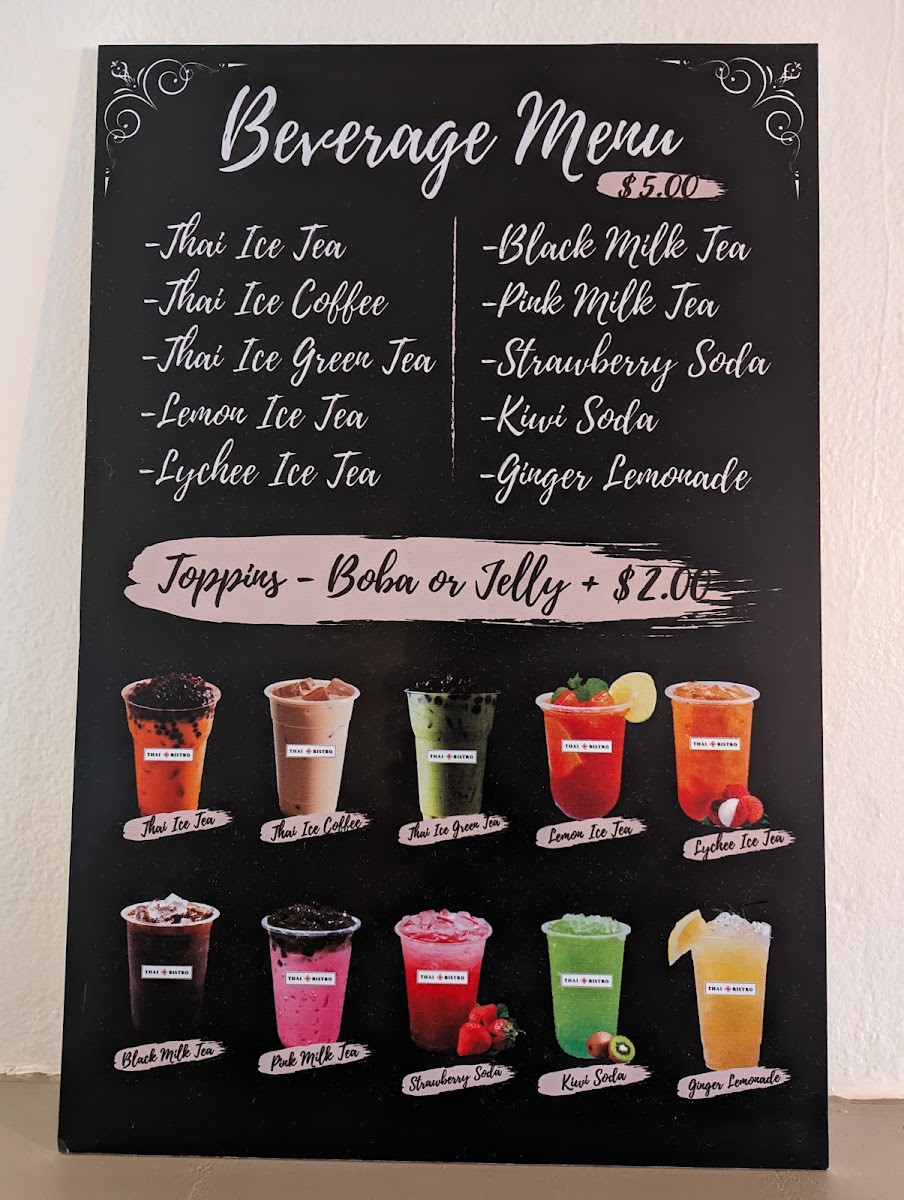 Beverage Menu
$5.00
-Thai Ice Tea
-Thai Ice Coffee
-Thai Ice Green Tea
-Lemon Ice Tea
-Lychee Ice Tea
-Black Milk Tea
-Pink Milk Tea
-Strawberry Soda
-Kiwi Soda
-Ginger Lemonade
Toppins - Boba or Jelly + $2.00
THAI BISTRO
THAI BISTRO
THAI BISTRO
THAI BISTRO
THAI BISTRO
Thai Ice Tea
Thai Ice Coffee
Thai Ice Green Tea
Lemon Ice Tea
Lychee Ice Tea
THAI BISTRO
THAI BISTRO
THAI BISTRO
THAI BISTRO
THAI BISTRO
Black Milk Tea
Pink Milk Tea
Strawberry Soda
Kiwi Soda
Ginger Lemonade